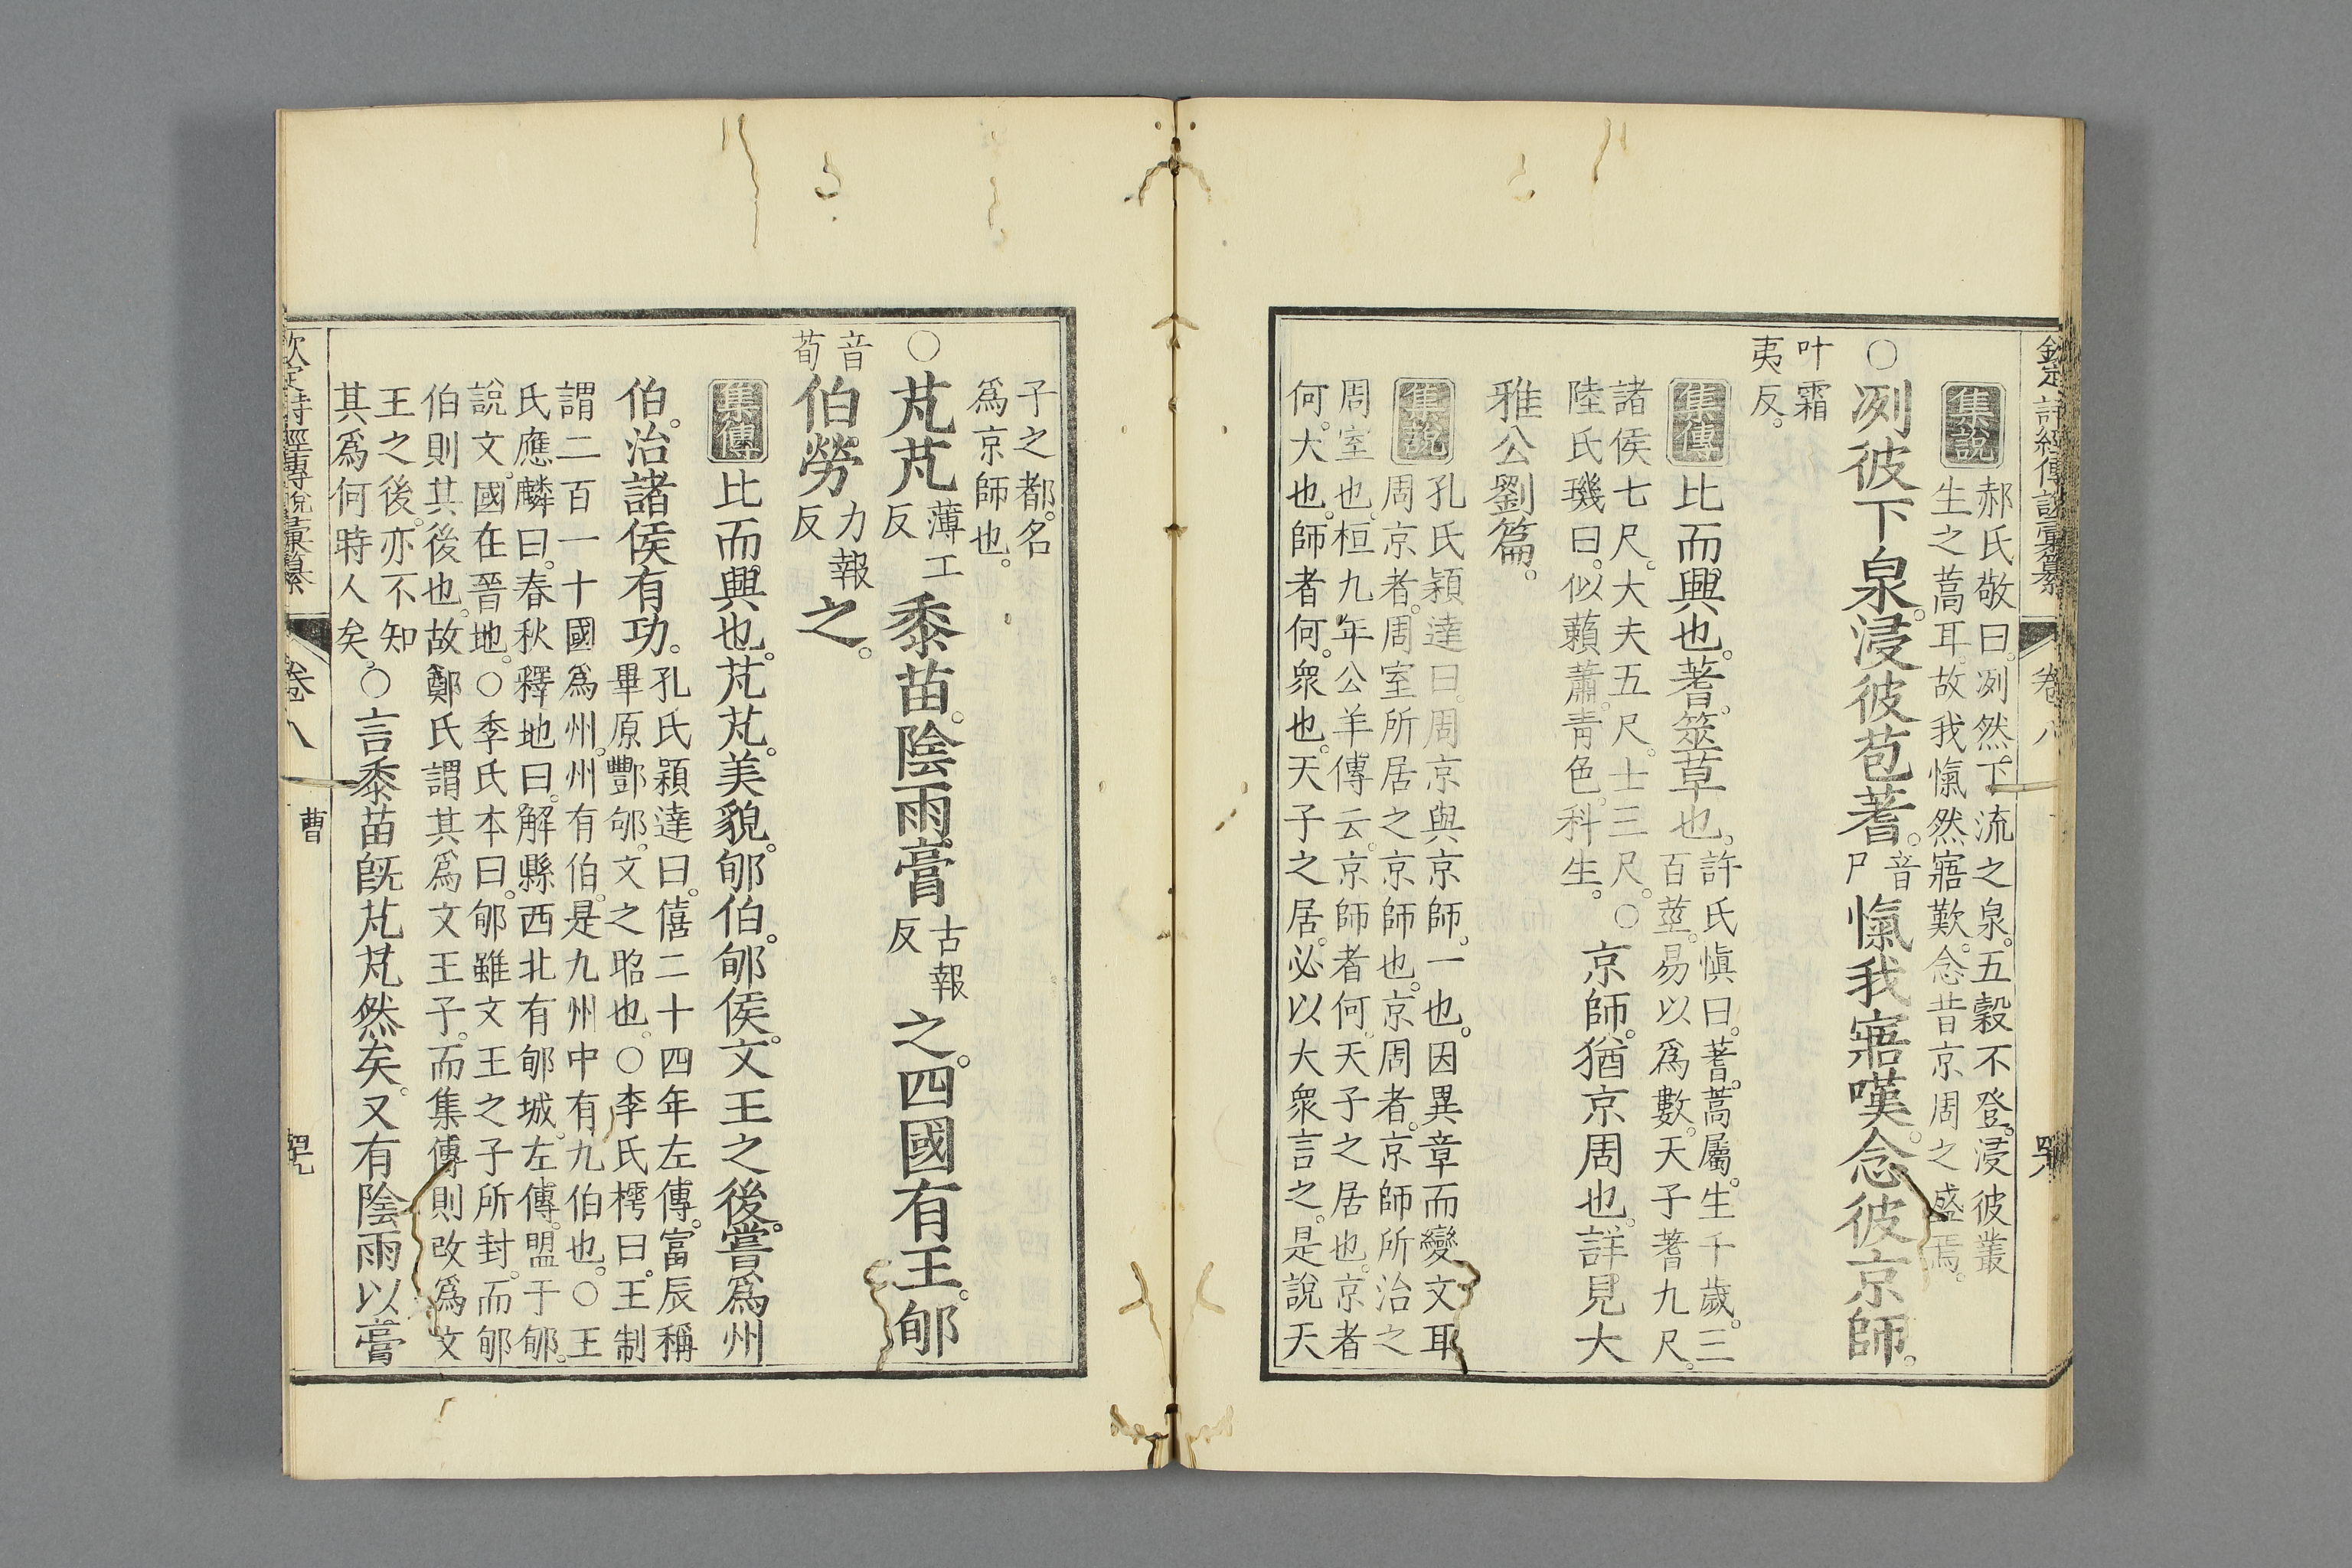 欽定詩經傳說彙纂 卷八
集說 郝氏敬曰。冽然下流之泉。五穀不登。浸彼叢
生之蒿耳。故我愾然寤歎。念昔京周之盛焉。
○冽彼下泉。浸彼苞蓍。音尸愾我寤嘆。念彼京師。
叶霜
夷反。
集傳 比而興也。蓍。筮草也。許氏愼曰。蓍。蒿屬。生千歲。三
百莖。易以爲數。天子蓍九尺。
諸侯七尺。大夫五尺。士三尺。○
陸氏璣曰。似藾蕭。靑色。科生。
京師。猶京周也。詳見大
雅公劉篇。
集說 孔氏穎達曰。周京與京師。一也。因異章而變文耳
周京者。周室所居之京師也。京周者。京師所治之
周室也。桓九年公羊傳云。京師者何。天子之居也。京者
何。大也。師者何。衆也。天子之居。必以大衆言之。是說天
子之都。名
爲京師也。
○芃芃薄工反黍苗。陰雨膏古報反之。四國有王。郇
音荀伯勞力報反之。
集傳 比而興也。芃芃。美貌。郇伯。郇侯。文王之後。嘗爲州
伯。治諸侯有功。孔氏穎達曰。僖二十四年左傳。富辰稱
畢原酆郇。文之昭也。○李氏樗曰。王制
謂二百一十國爲州。州有伯。是九州中有九伯也。○王
氏應麟曰。春秋釋地曰。解縣西北有郇城。左傳。盟于郇。
說文。國在晉地。○季氏本曰。郇雖文王之子所封。而郇
伯則其後也。故鄭氏謂其爲文王子。而集傳則改爲文
王之後。亦不知
其爲何時人矣。
○言黍苗旣芃芃然矣。又有陰雨以膏
欽定詩經傳說彙纂 卷八 曹